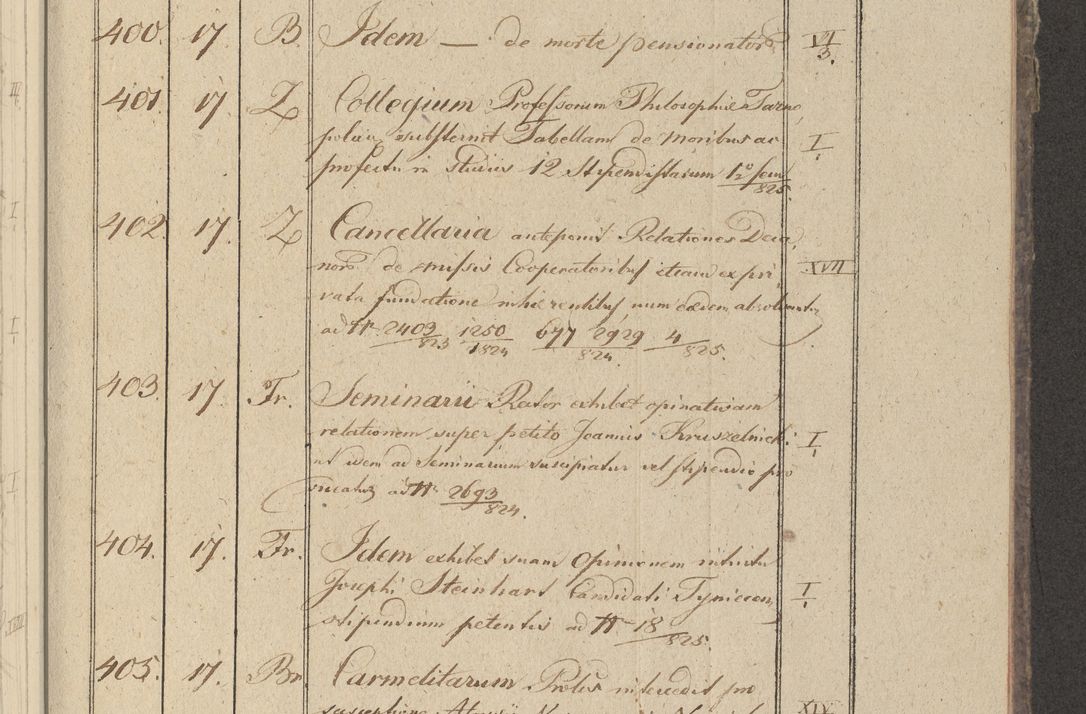 400. 17 B. Idem — de morte pensionator. VI/3.
401. 17 Z Collegium Professorum Philosophiae Tarno
poliae substernit Tabellam de moribus ac I/1.
profectu in studiis 12 Stipendistarum 1º Sem/825.
402. 17. Z Cancellaria anteponit Relationes Deca
nor. de missis Cooperatoribus etiam ex pri XVII
vata fundatione inhaerentibus, num eaedem absolvantur
ad Nr 2409/823 1250/1824 677 2929/824. 4/825.
403. 17. Fr. Seminarii Rector exhibet opinativam
relationem super petito Joannis Kruszelnicki I/1
ut idem ad Seminarium suscipiatur vel stipendio pro
ad Nr 2693/824.
404. 17. Fr. Idem exhibet suam opinionem intuitu
Josephi Steinhart Candidati Tyniecen, I/1
stipendium petentis ad Nr 18/825.
405. 17. Br. Carmelitarum intercedit pro
susceptione XIV.